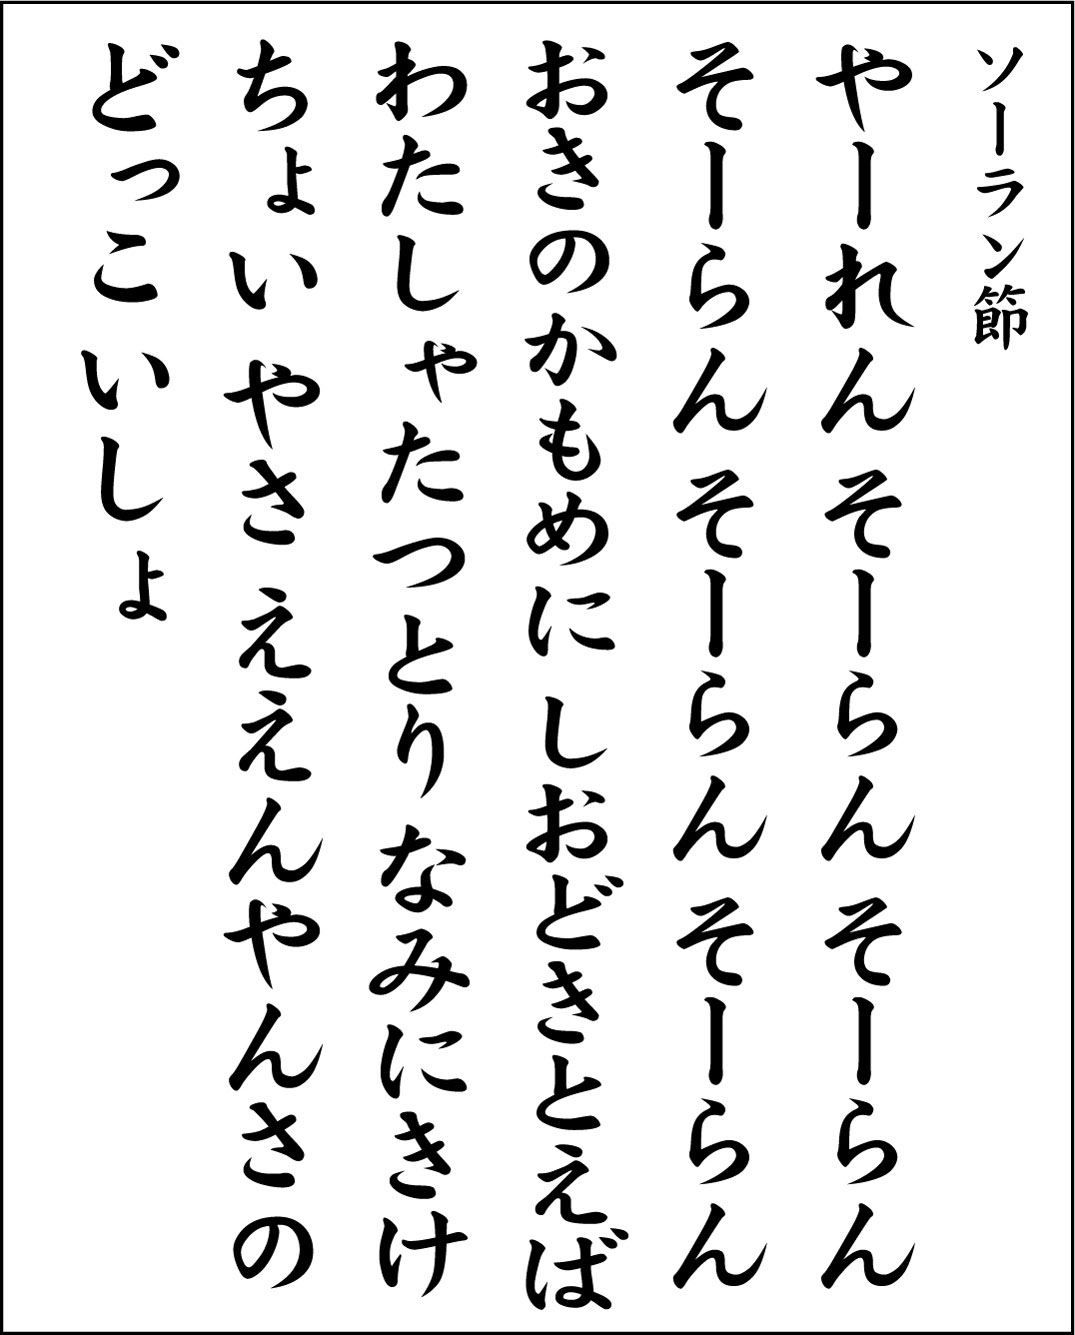 ソーラン節
やーれん そーらん そーらん
そーらん そーらん そーらん
おきのかもめに しおどきとえば
わたしゃたつとり なみにきけ
ちょい やさ ええんやんさの
どっこいしょ